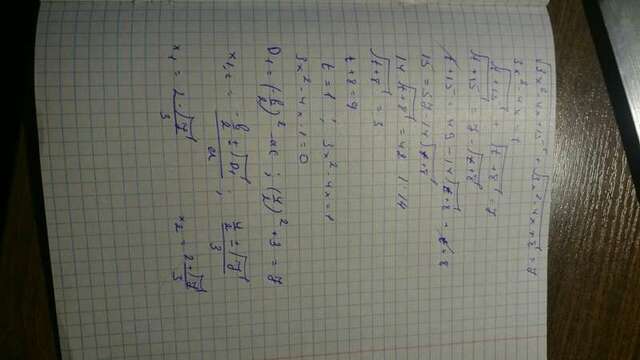 √3x²-4x+15 + √3x²-4x+8 = 7
3x²-4x = t
√t+15 + √t+8 = 7
√t+15 = 7 - √t+8
t+15 = 49 - 14√t+8 + t+8
15 = 57 - 14√t+8
14√t+8 = 42 | : 14
√t+8 = 3
t+8 = 9
t = 1 ; 3x²-4x=1
3x²-4x-1=0
D₁ = (b/2)² - ac ; (4/2)² + 3 = 7
x₁,₂ = (b/2 ± √D₁)/a ; (4/2 ± √7)/3
x₁ = (2-√7)/3 x₂ = (2+√7)/3